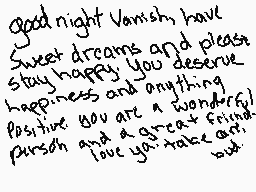 good night Vanish, have
sweet dreams and please
stay happy. You deserve
happiness and anything
Positive. you are a wonderful
person and a great friend.
love ya. take care,
bud.